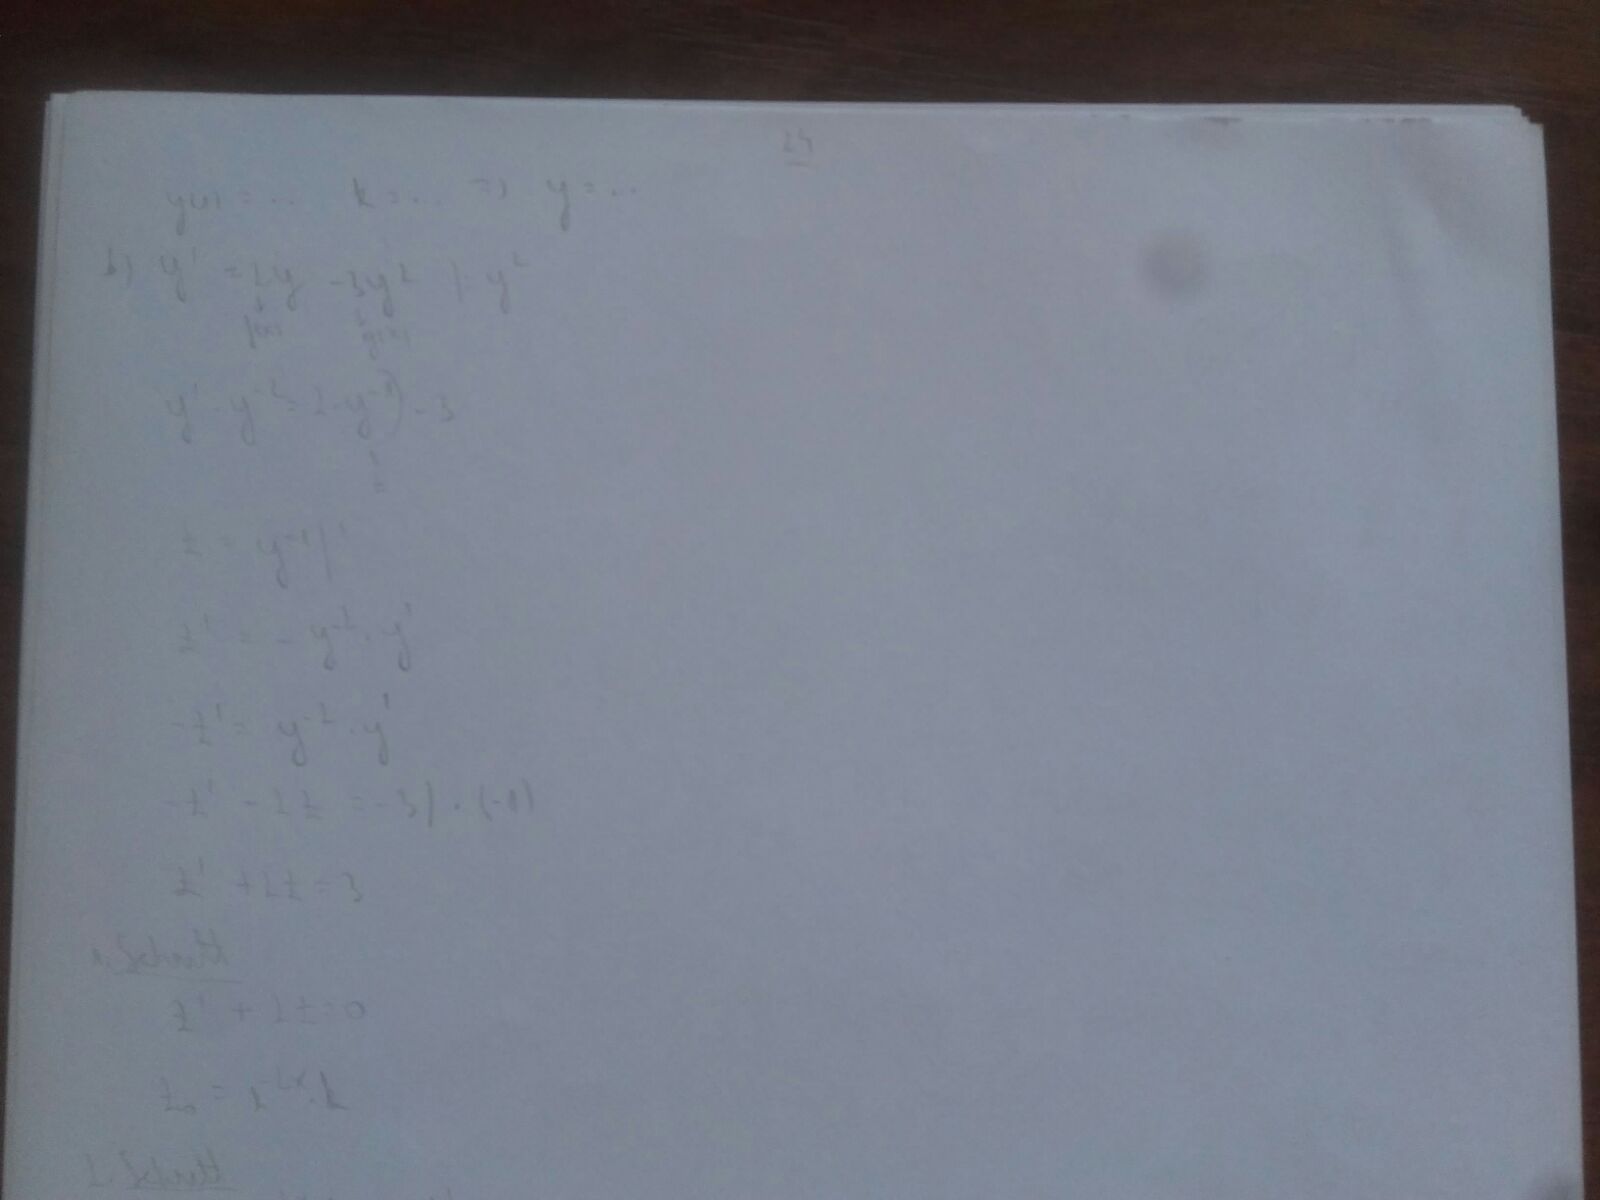 24
y(1) = ... k = ... => y = ...
b) y' = 2y - 3y² | : y²
f(x) g(x)
y' · y⁻² = 2 · y⁻¹ - 3
z = y⁻¹ | '
z' = - y⁻² · y'
-z' = y⁻² · y'
-z' - 2z = -3 | · (-1)
z' + 2z = 3
1. Schritt
z' + 2z = 0
= e⁻²ˣ · k
2. Schritt